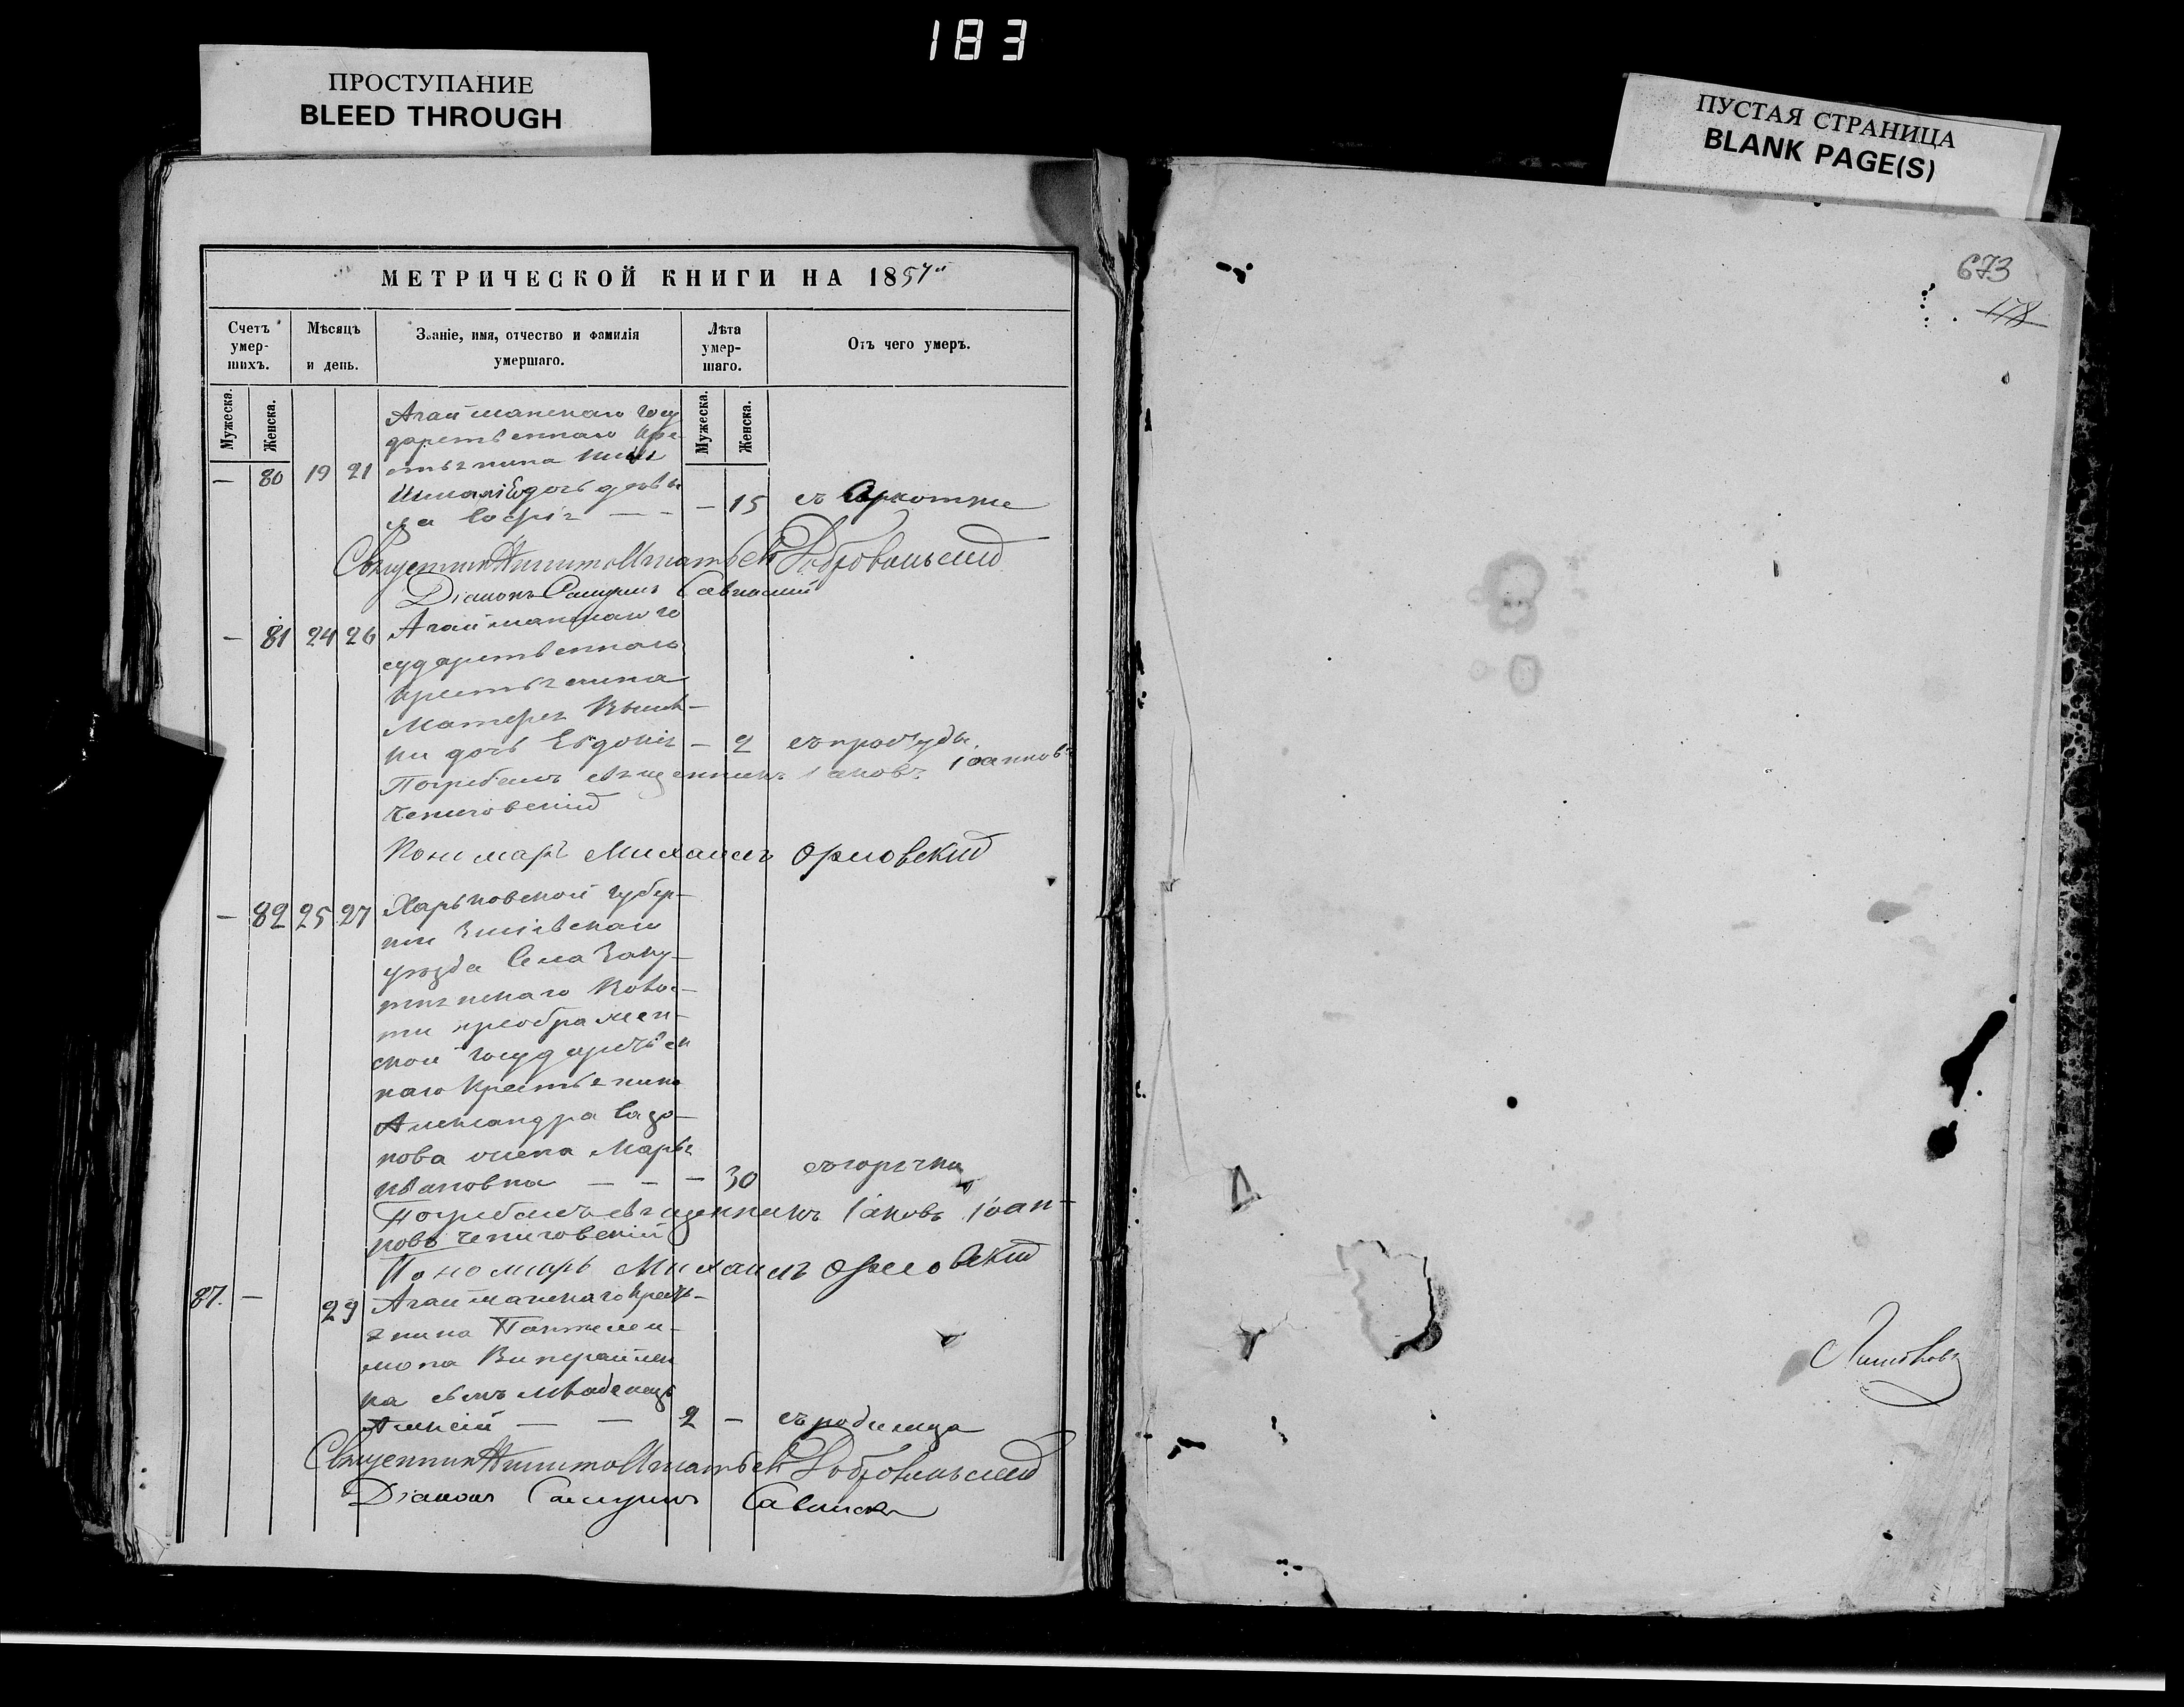 183
ПРОСТУПАНИЕ
BLEED THROUGH
ПУСТАЯ СТРАНИЦА
BLANK PAGE(S)
МЕТРИЧЕСКОЙ КНИГИ НА 1857й
Счетъ умер-шихъ.
Мѣсяцъ и день.
Званіе, имя, отчество и фамилія умершаго.
Лѣта умер-шаго.
Отъ чего умеръ.
Мужеска.
Женска.
Мужеска.
Женска.
Агайманскаго Госу
дарственнаго Кре
— 80 19 21 стьянина
дочь дѣви
ца Софія — — — 15 съ
Священникъ Никита Игнатьевъ Добровольскій
Діаконъ Самуилъ Савинскій
— 81 24 26 Агайманскаго Го
сударственнаго
Крестьянина
дочь Евдокія — 2 съ простуды
Погребалъ Священникъ Іаковъ Іоанновъ
Чениговскій
Пономарь Михаилъ Орловскій
— 82 25 27 Харьковской Губер-
ніи Зміевскаго
уѣзда Села
преображен-
ской Государствен
наго Крестьянина
Александра
нова жена Марья
Ивановна — — — 30 съ горячки
Погребалъ Священникъ Іаковъ Іоан-
новъ Чениговскій
Пономарь Михаилъ Орловскій
87. — 29 Агайманскаго Кресть-
янина Пантелей-
мона
на сынъ младенецъ
Алексій — — 2 — съ родимца
Священникъ Никита Игнатьевъ Добровольскій
Діаконъ Самуилъ Савинскій
673
178